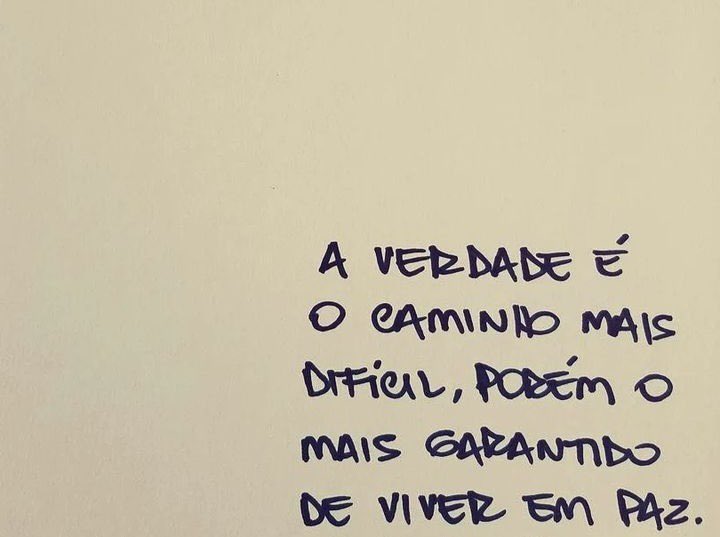 A VERDADE É
O CAMINHO MAIS
DIFÍCIL, PORÉM O
MAIS GARANTIDO
DE VIVER EM PAZ.